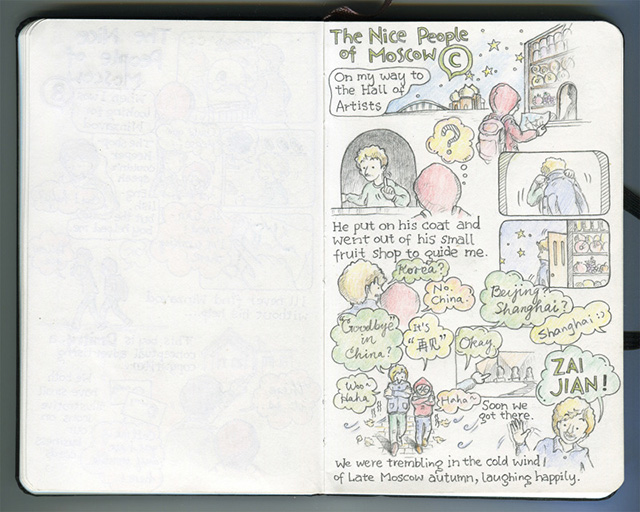 The Nice People
of Moscow
C
On my way to
the Hall of
Artists
?
He put on his coat and
went out of his small
fruit shop to guide me.
Korea?
No.
China.
Beijing?
Shanghai?
Shanghai :)
"Goodbye"
in
China?
It's
"再见"
Okay
ZAI
JIAN!
Woo~
Haha
Haha~
Soon we
got there.
We were trembling in the cold wind
of Late Moscow autumn, laughing happily.